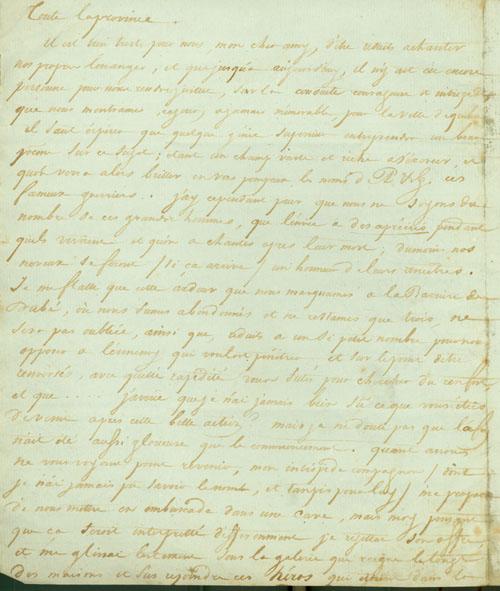 Toute la province.
Il est bien triste pour nous mon cher amy, d'être réduit a chanter
nos propres louanges, et que jusqu'a aujourdhuy, il n'y ait eu encore
personne pour nous rendre justice, sur la conduite courageuse et intrepide
que nous montrames, a jamais mémorable, pour la ville de
il faut esperer que quelque génie superieur entreprendra un beau
poeme sur ce sujet; étant un champ vaste et riche a
qu'on verra alors briller en vas pompeux le nom d' ces
fameux guerriers.. j'ay cependant peur que nous ne soyons du
nombre de ces grands hommes, que l'envie a déprécies pendant
quils vivoient et qu'on a chantés apres leur mort; dumoins nos
neveux se feront /si ca arrive/ un honneur de leurs ancêtres.
Je me flatte que cette ardeur que nous marquames a la Barriere de
où nous fumes abandonnés et ne restames que trois, ne
sera pas oubliée, ainsi que, reduits a un si petit nombre pour nous
opposer a l'ennemy qui vouloit penétrer et sur le point d'être
renversés, avec quelle rapidité vous futes pour chercher du renfort
et que ..... jamais que je n'ai jamais bien sû ce que vous étiés
devenu après cette belle action? mais je ne doute pas que la fin
n'ait été aussi glorieuse que le commencement. quand
ne vous voyant point revenir, mon intrépide compagnon / dont
je n'ai jamais pû savoir le nom, et tant pis pour luy / me proposa
de nous mettre en embuscade dans une cave, mais moy
que ca seroit interpretté differemment je rejettai son offre
et me glissai bravement sous la galerie qui reigne le long
des maisons et fus rejoindre ces héros qui dans la